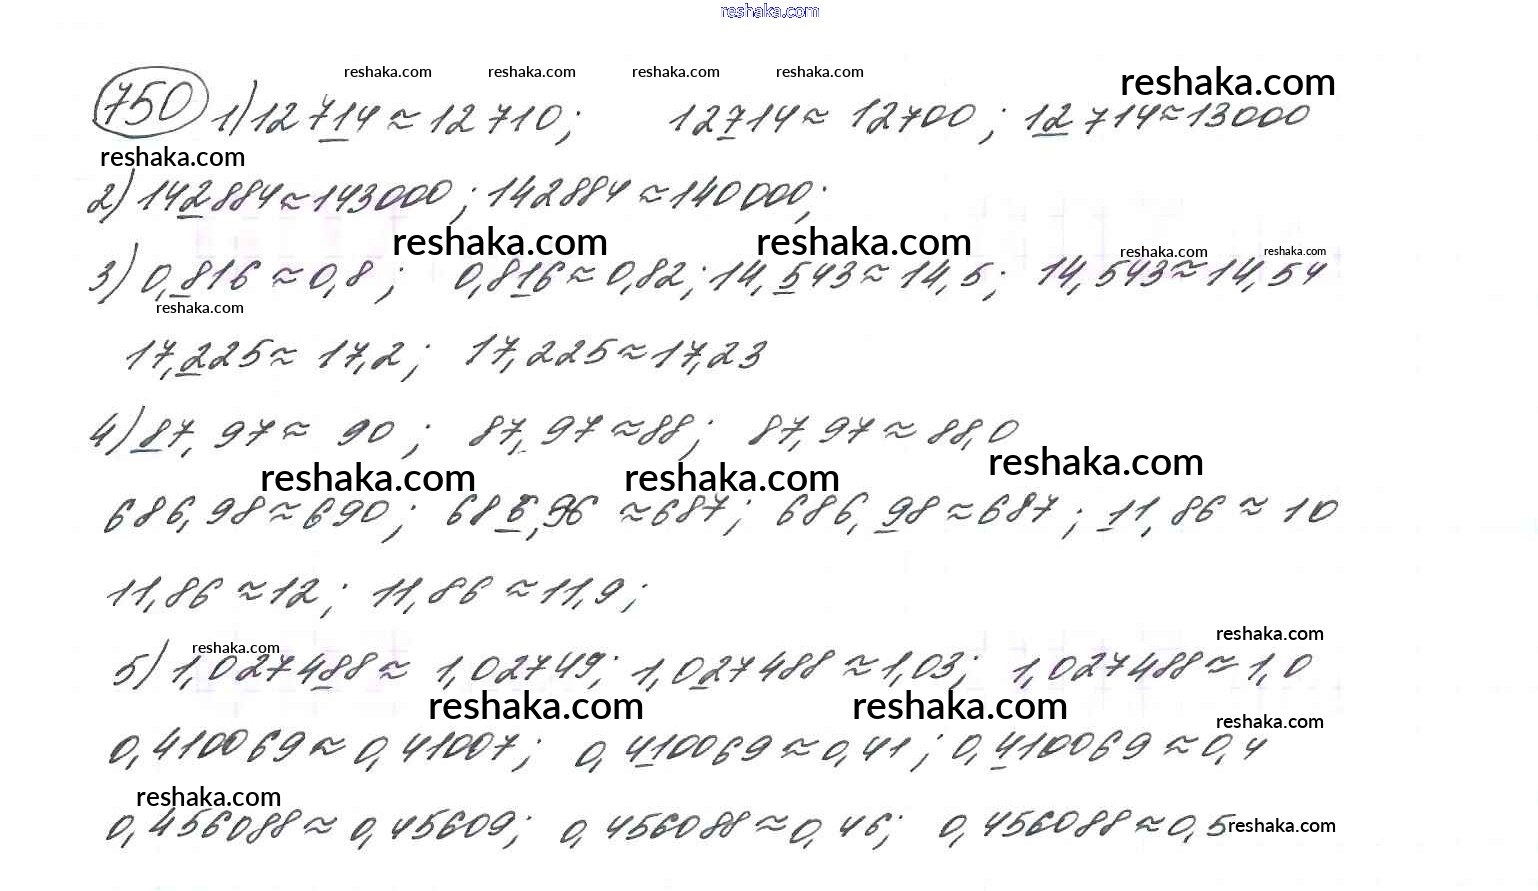 reshaka.com
reshaka.com reshaka.com reshaka.com reshaka.com reshaka.com
750 1) 12714 ≈ 12710; 12714 ≈ 12700; 12714 ≈ 13000
reshaka.com
2) 142884 ≈ 143000; 142884 ≈ 140000;
reshaka.com reshaka.com reshaka.com reshaka.com
3) 0,816 ≈ 0,8; 0,816 ≈ 0,82; 14,543 ≈ 14,5; 14,543 ≈ 14,54
reshaka.com
17,225 ≈ 17,2; 17,225 ≈ 17,23
4) 87,97 ≈ 90; 87,97 ≈ 88; 87,97 ≈ 88,0
reshaka.com reshaka.com reshaka.com
686,98 ≈ 690; 686,96 ≈ 687; 686,98 ≈ 687; 11,86 ≈ 10
11,86 ≈ 12; 11,86 ≈ 11,9;
reshaka.com reshaka.com
5) 1,027488 ≈ 1,02749; 1,027488 ≈ 1,03; 1,027488 ≈ 1,0
reshaka.com reshaka.com reshaka.com
0,410069 ≈ 0,41007; 0,410069 ≈ 0,41; 0,410069 ≈ 0,4
reshaka.com
0,456088 ≈ 0,45609; 0,456088 ≈ 0,46; 0,456088 ≈ 0,5
reshaka.com